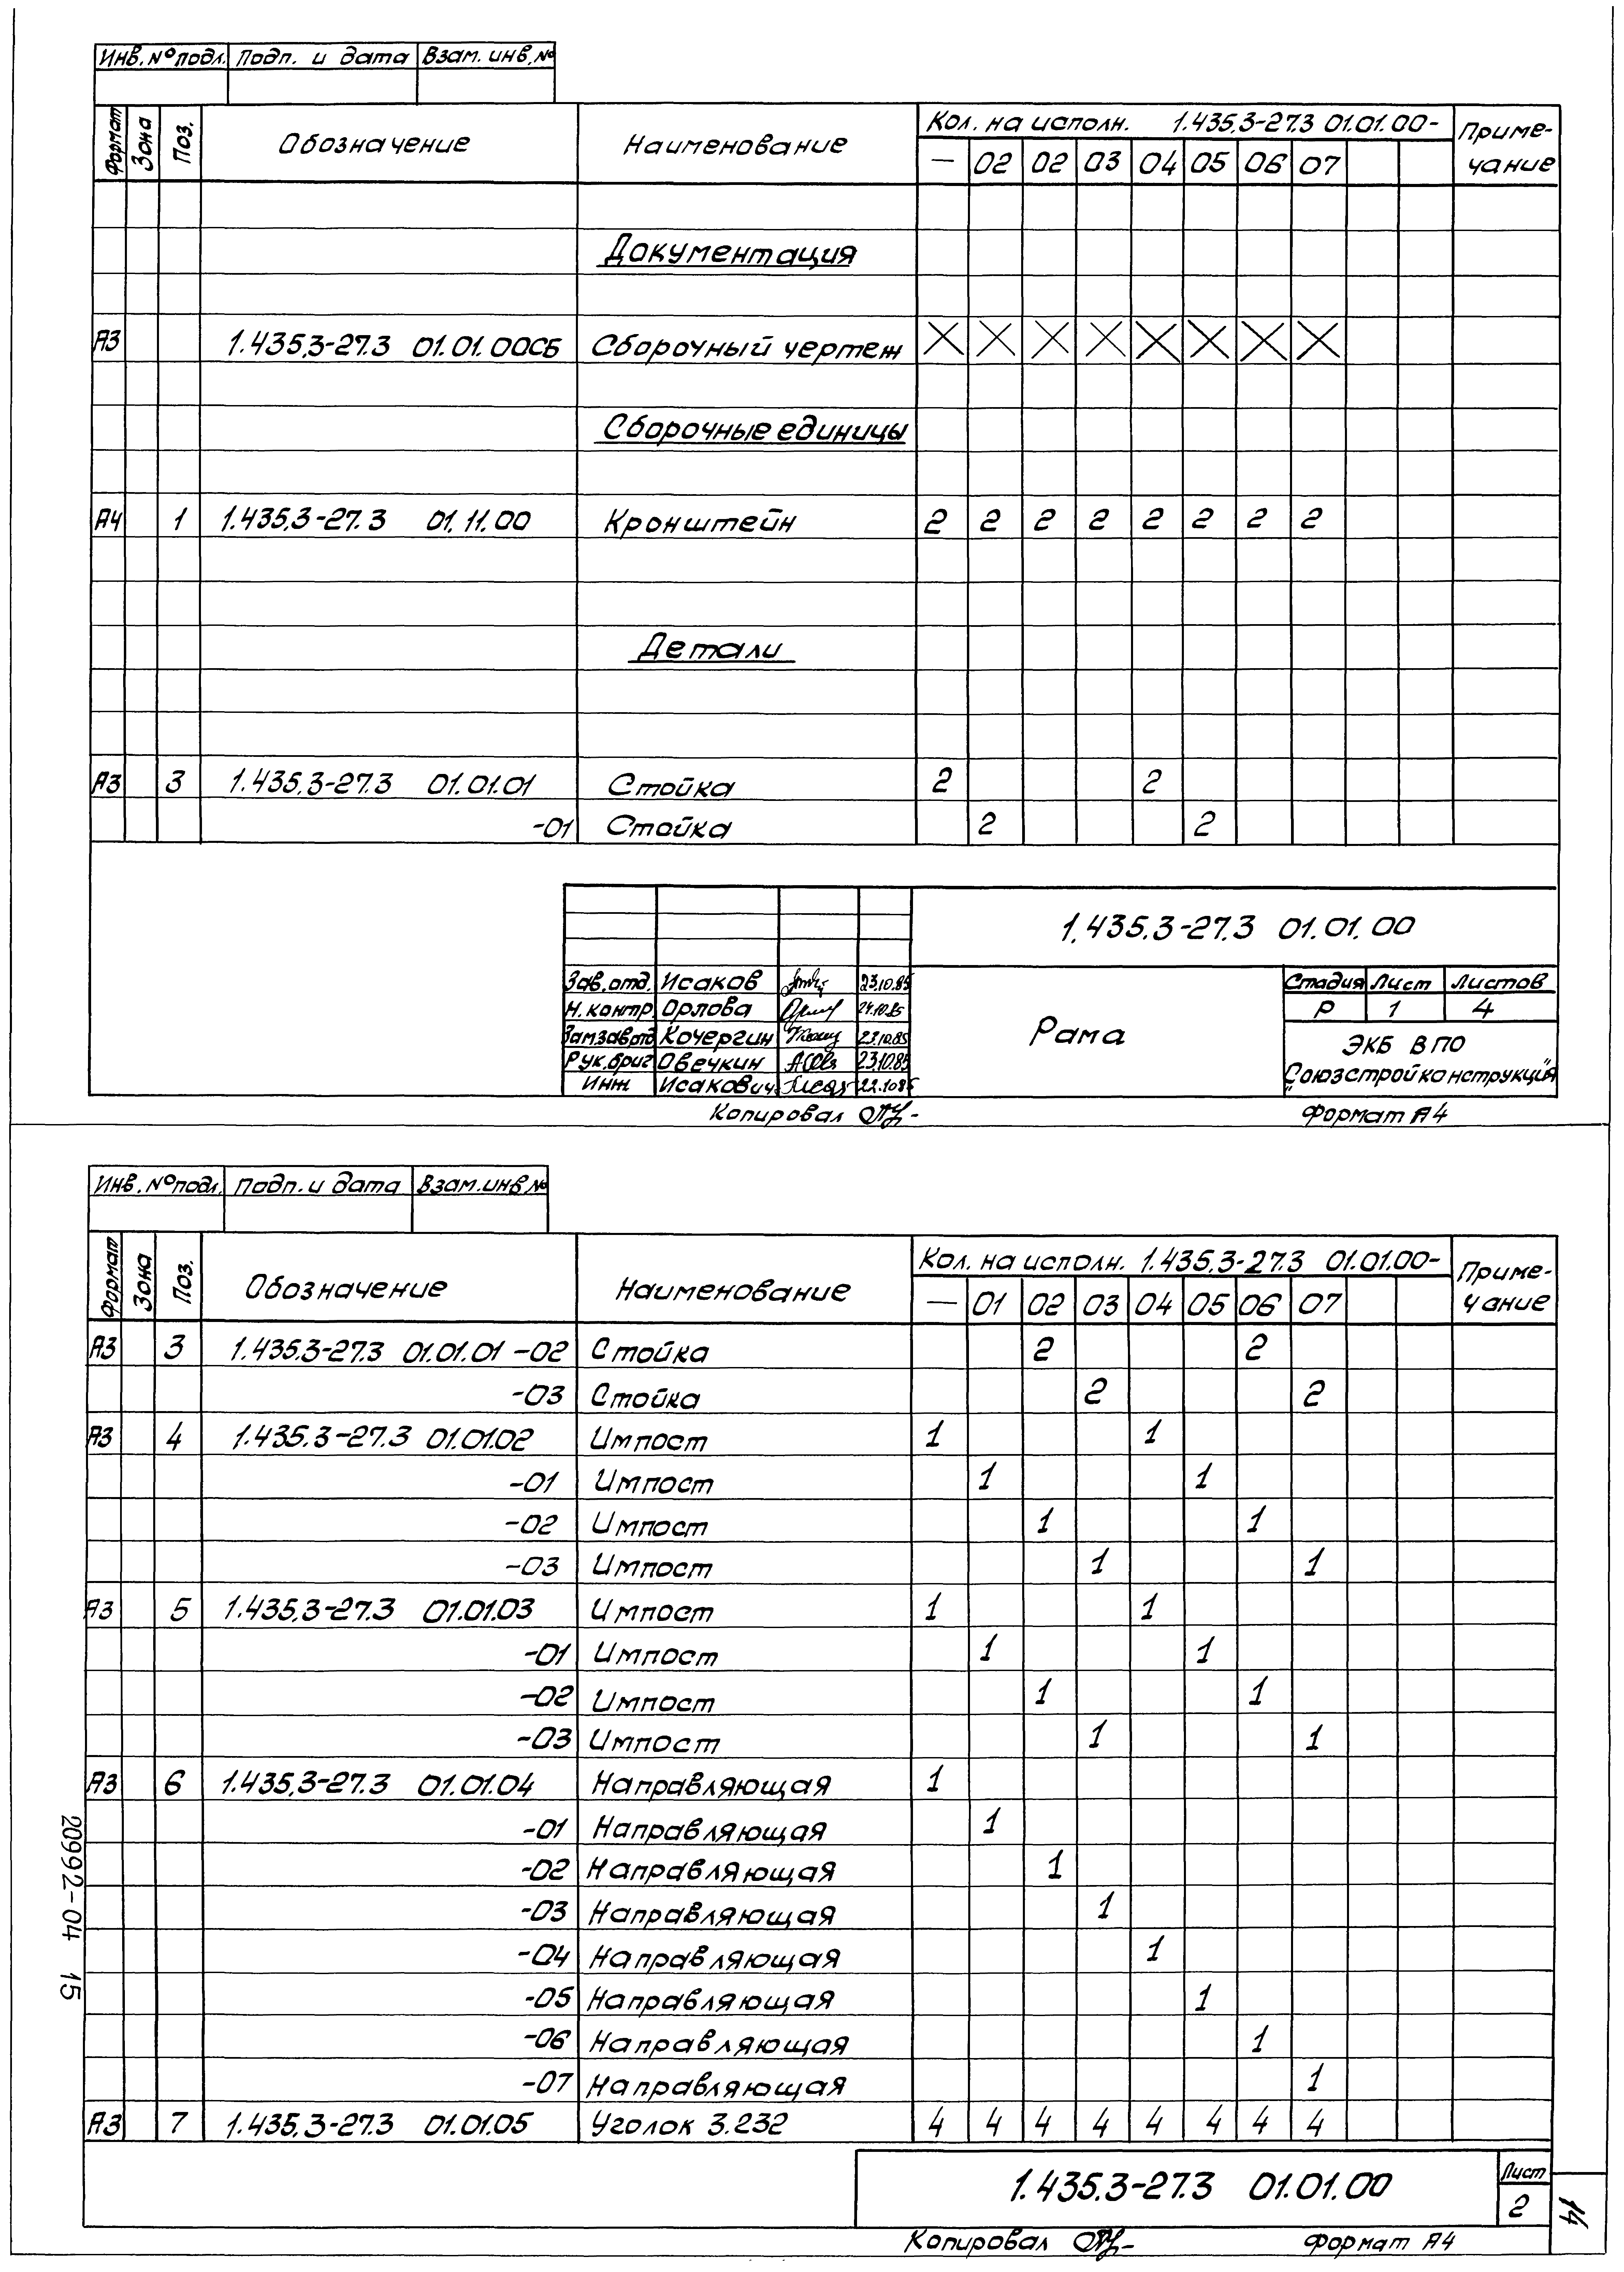 Инв. № подл. Подп. и дата Взам. инв. №
Формат Зона Поз. Обозначение Наименование Кол. на исполн. 1.435.3-27.3 01.01.00- Приме-
— 02 02 03 04 05 06 07 чание
Документация
А3 1.435.3-27.3 01.01.00СБ Сборочный чертеж X X X X X X X X
Сборочные единицы
А4 1 1.435.3-27.3 01.11.00 Кронштейн 2 2 2 2 2 2 2 2
Детали
А3 3 1.435.3-27.3 01.01.01 Стойка 2 2
-01 Стойка 2 2
1.435.3-27.3 01.01.00
Зав. отд. Исаков 23.10.85
Н. контр. Орлова 24.10.85
Зам.зав.отд Кочергин 23.10.85
Рук. бриг Овечкин 23.10.85
Инж Исакович 22.10.85
Рама
Стадия Лист Листов
Р 1 4
ЭКБ ВПО
"Союзстройконструкция"
Копировал Формат А4
Инв. № подл. Подп. и дата Взам. инв. №
Формат Зона Поз. Обозначение Наименование Кол. на исполн. 1.435.3-27.3 01.01.00- Приме-
— 01 02 03 04 05 06 07 чание
А3 3 1.435.3-27.3 01.01.01 -02 Стойка 2 2
-03 Стойка 2 2
А3 4 1.435.3-27.3 01.01.02 Импост 1 1
-01 Импост 1 1
-02 Импост 1 1
-03 Импост 1 1
А3 5 1.435.3-27.3 01.01.03 Импост 1 1
-01 Импост 1 1
-02 Импост 1 1
-03 Импост 1 1
А3 6 1.435.3-27.3 01.01.04 Направляющая 1
-01 Направляющая 1
-02 Направляющая 1
-03 Направляющая 1
-04 Направляющая 1
-05 Направляющая 1
-06 Направляющая 1
-07 Направляющая 1
А3 7 1.435.3-27.3 01.01.05 Уголок 3.232 4 4 4 4 4 4 4 4
1.435.3-27.3 01.01.00
Лист
2
Копировал Формат А4
20992-04 15
14